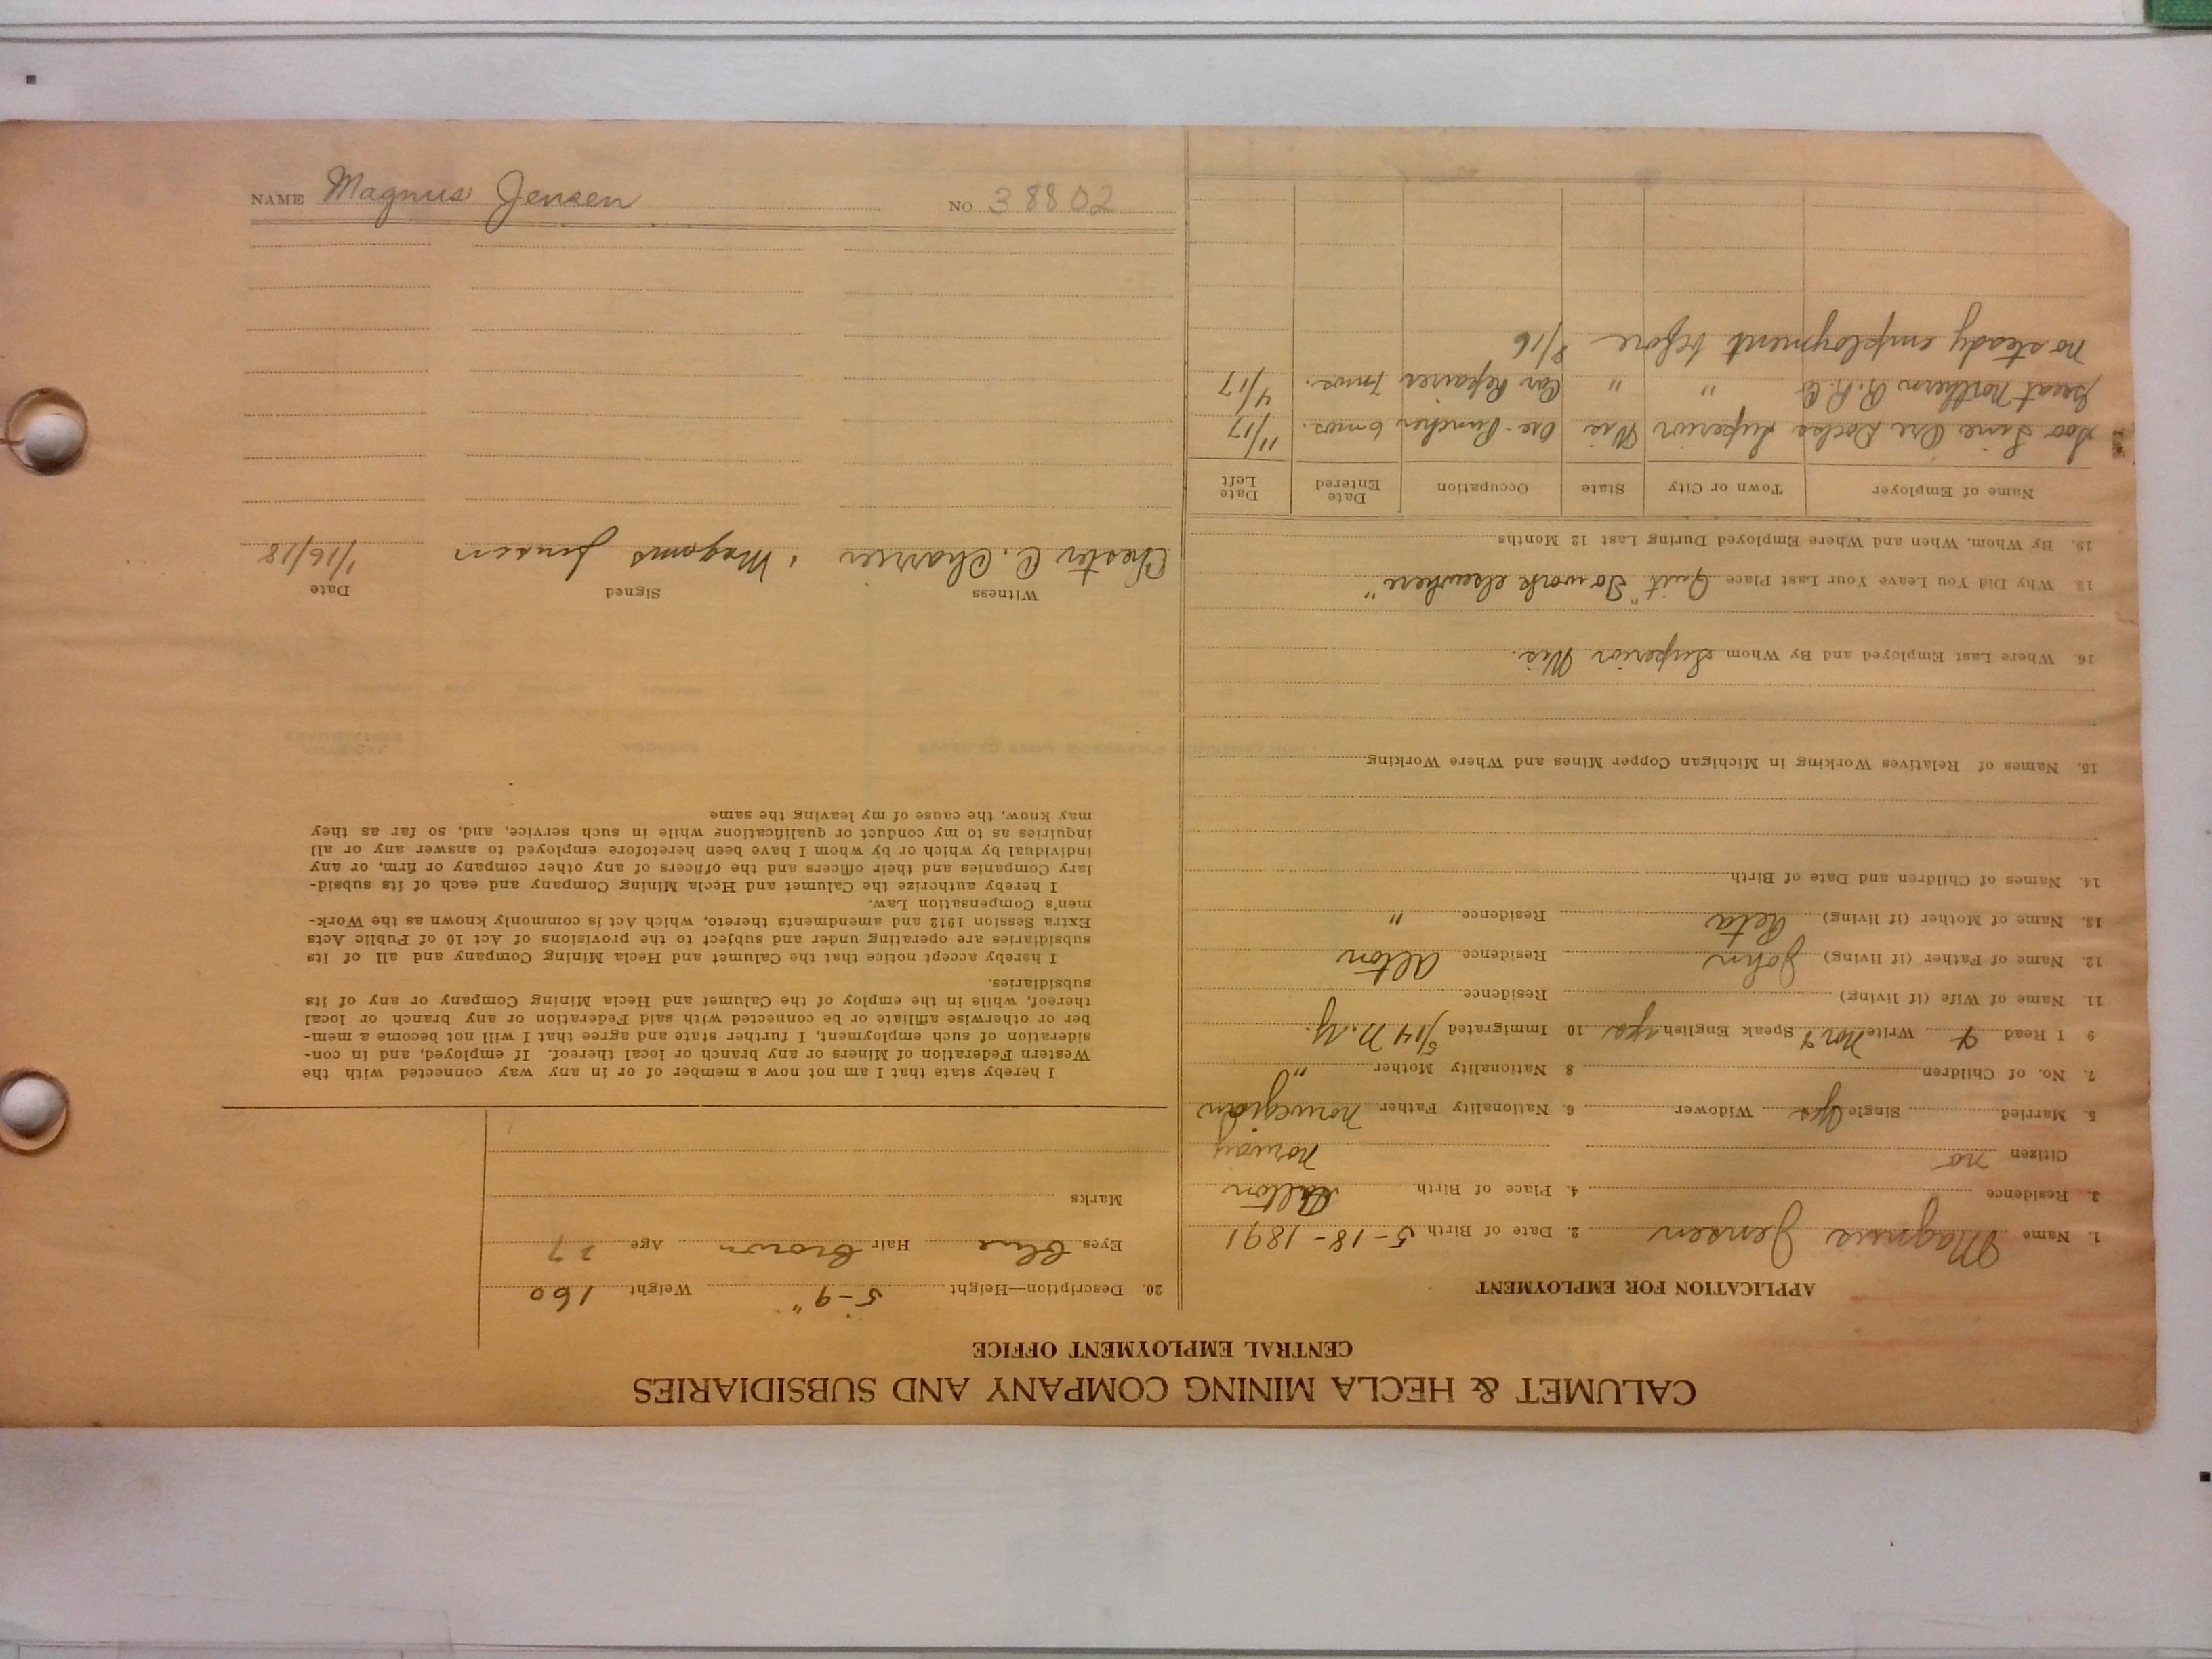 CALUMET & HECLA MINING COMPANY AND SUBSIDIARIES
CENTRAL EMPLOYMENT OFFICE
APPLICATION FOR EMPLOYMENT
1. Name Magnus Jensen 2. Date of Birth 5-18-1891
3. Residence 4. Place of Birth Alton
Citizen no Norway
5. Married Single Yes Widower 6. Nationality Father Norwegian
7. No. of Children 8 Nationality Mother "
9 I Read Write Speak English yes 10 Immigrated 5/14 N.Y.
11. Name of Wife (if living) Residence
12. Name of Father (if living) John Residence Alton
13. Name of Mother (if living) Residence "
14. Names of Children and Date of Birth
15. Names of Relatives Working in Michigan Copper Mines and Where Working
16. Where Last Employed and By Whom Superior Wis.
18. Why Did You Leave Your Last Place Quit "To work elsewhere"
19. By Whom, When and Where Employed During Last 12 Months
Name of Employer Town or City State Occupation Date Entered Date Left
Soo Line Ore Docks Superior Wis Ore-Puncher 6 mos. 11/17
Great Northern R.R. Co " " Car Repairer 7 mos. 4/17
No steady employment before 8/16
20. Description—Height 5-9" Weight 160
Eyes Blue Hair Brown Age 27
Marks
I hereby state that I am not now a member of or in any way connected with the
Western Federation of Miners or any branch or local thereof. If employed, and in con-
sideration of such employment, I further state and agree that I will not become a mem-
ber or otherwise affiliate or be connected with said Federation or any branch or local
thereof, while in the employ of the Calumet and Hecla Mining Company or any of its
subsidiaries.
I hereby accept notice that the Calumet and Hecla Mining Company and all of its
subsidiaries are operating under and subject to the provisions of Act 10 of Public Acts
Extra Session 1912 and amendments thereto, which Act is commonly known as the Work-
men's Compensation Law.
I hereby authorize the Calumet and Hecla Mining Company and each of its subsid-
iary Companies and their officers and the officers of any other company or firm, or any
individual by which or by whom I have been heretofore employed to answer any or all
inquiries as to my conduct or qualifications while in such service, and, so far as they
may know, the cause of my leaving the same
Witness Signed Date
Chester C. Magnus Jensen 1/16/18
NAME Magnus Jensen NO 38802